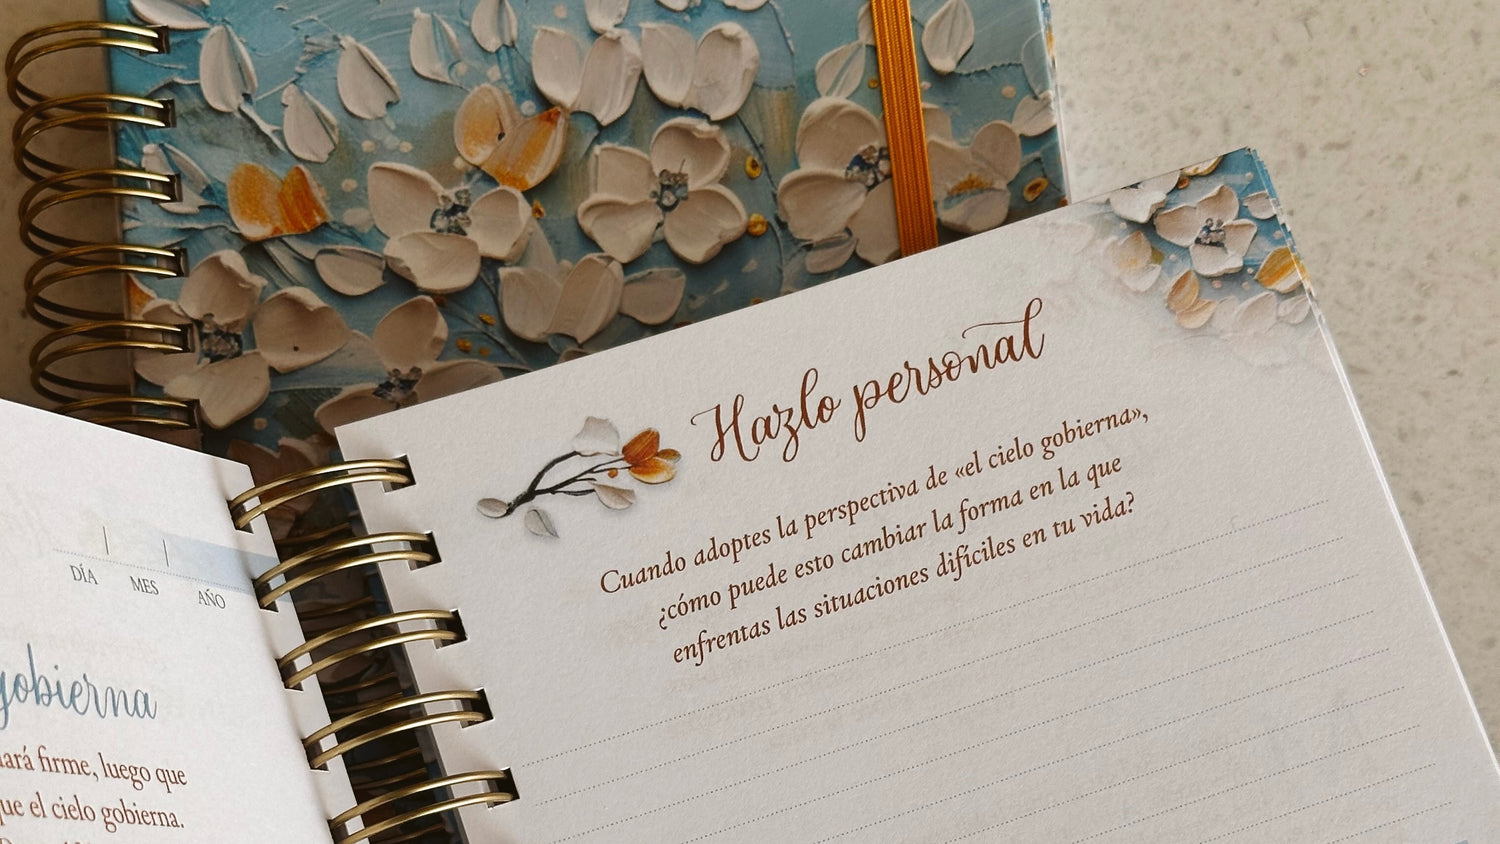 DÍA MES AÑO
gobierna
firme, luego que
que el cielo gobierna.
Hazlo personal
Cuando adoptes la perspectiva de «el cielo gobierna»,
¿cómo puede esto cambiar la forma en la que
enfrentas las situaciones difíciles en tu vida?